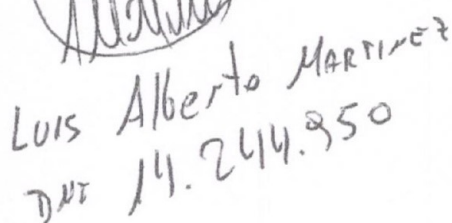 Luis Alberto MARTINEZ
DNI 14.244.950